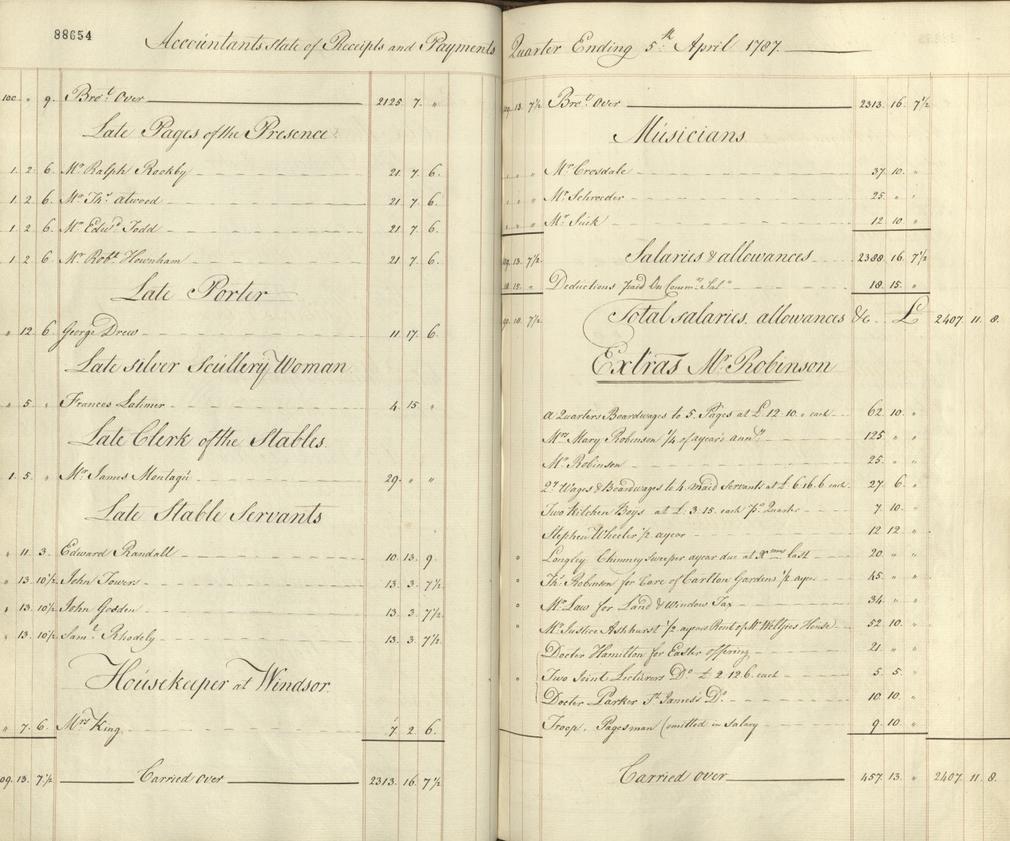 88654
Accountants State of Receipts and Payments Quarter Ending 5th April 1787.
100 " 9. Bro.t Over 2125 7. "
Late Pages of the Presence
1. 2 6. Mr. Ralph Rookby 21 7 6.
1. 2 6. Mr. Thos. Atwood 21 7 6.
1. 2 6. Mr. Edwd. Todd 21 7 6.
1. 2 6. Mr. Robt. Hownham 21 7 6.
Late Porter
" 12 6 George Drew 11 17 6.
Late Silver Scullery Woman
" 5 " Frances Latimer 4 15 "
Late Clerk of the Stables
1. 5 " Mr. James Montagu 29 " "
Late Stable Servants
" 11 3. Edward Randall 10 13 9
" 13 10½ John Towers 13 3 7½
" 13 10½ John Godden 13 3 7½
" 13 10½ Saml. Rhodely 13 3 7½
Housekeeper at Windsor
" 7. 6. Mrs. King 7 2 6.
09. 13. 7½ Carried over 2313 16 7½
09. 13 7½ Bro.t Over 2313. 16. 7½
Musicians
" " " Mr. Crosdale 37. 10. "
" " " Mr. Schroeder 25. " "
" " " Mr. Suck 12 10 "
09. 13. 7½ Salaries & allowances 2388 16 7½
18. 15. " Deductions paid On Comm.rs Sal.s 18. 15. "
90. 18. 7½ Total salaries, allowances &c £ 2407 11 8.
Extras Mr. Robinson
a Quarters Boardwages to 5. Pages at £ 12 10. " each 62. 10. "
Mrs Mary Robinson ¼ of a year's ann.y 125 " "
Mr. Robinson 25. " "
Qr. Wages & Boardwages to 4 maid Servants at £ 6.16.6 each 27 6. "
Two Kitchen Boys at £ 3. 15. each pr. Quarter 7 10. "
Stephen Wheeler ½ a year 12 12 "
" Longley Chimney Sweeper a year due at Xmas last 20. " "
" Thos. Robinson for Care of Carlton Gardens ½ a year 45 " "
" Mr. Law for Land & Window Tax 34. " "
" Mr. Justice Ashhurst ½ a years Rent of Mr. Weltjies House 52 10. "
Doctor Hamilton for Easter offering 21 " "
" Two Joint Lecturers Do. £ 2. 12 6. each 5 5. "
Doctor Parker St. James's Do. 10. 10. "
Troop, Pagesman (omitted in Salary 9. 10. "
Carried over 457. 13. " 2407 11. 8.